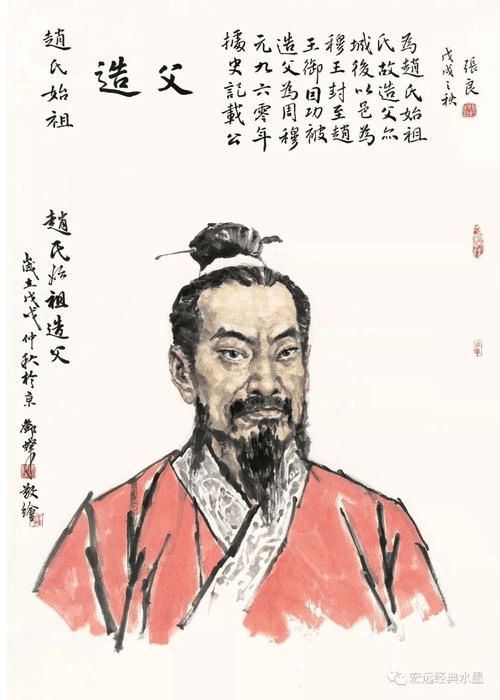 趙氏始祖
造父
據史記載公
元九六零年
造父為周穆
王御因功被
穆王封至趙
城後以邑為
氏故造父亦
為趙氏始祖
戊戌之秋
張良
趙氏始祖造父
歲在戊戌仲秋於京 敬繪
宏远经典水墨